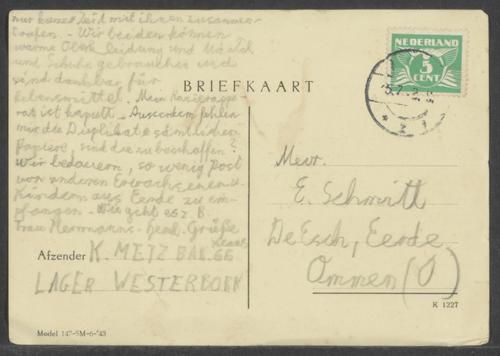 nur kurze Zeit mit ihnen zusammen
trafen. - Wir beiden können
warme Oberkleidung und Wäsche
und Schuhe gebrauchen und
sind dankbar für
Lebensmittel. Mein Rasierappa-
rat ist kaputt. - Ausserdem fehlen
mir die Duplikate sämtlicher
Papiere, sind die zu beschaffen?
Wir bedauern, so wenig Post
von anderen Erwachsenen u.
Kindern aus Eerde zu em-
pfangen. - Wie geht es z. B.
Frau Herrmanns. Herzl. Grüße
Klaus
Afzender K. METZ BAR. 66
LAGER WESTERBORK
Model 147-5M-6-'43
BRIEFKAART
NEDERLAND
5
CENT
Mevr.
E. Schmitt
De Esch, Eerde
Ommen (O)
K 1227